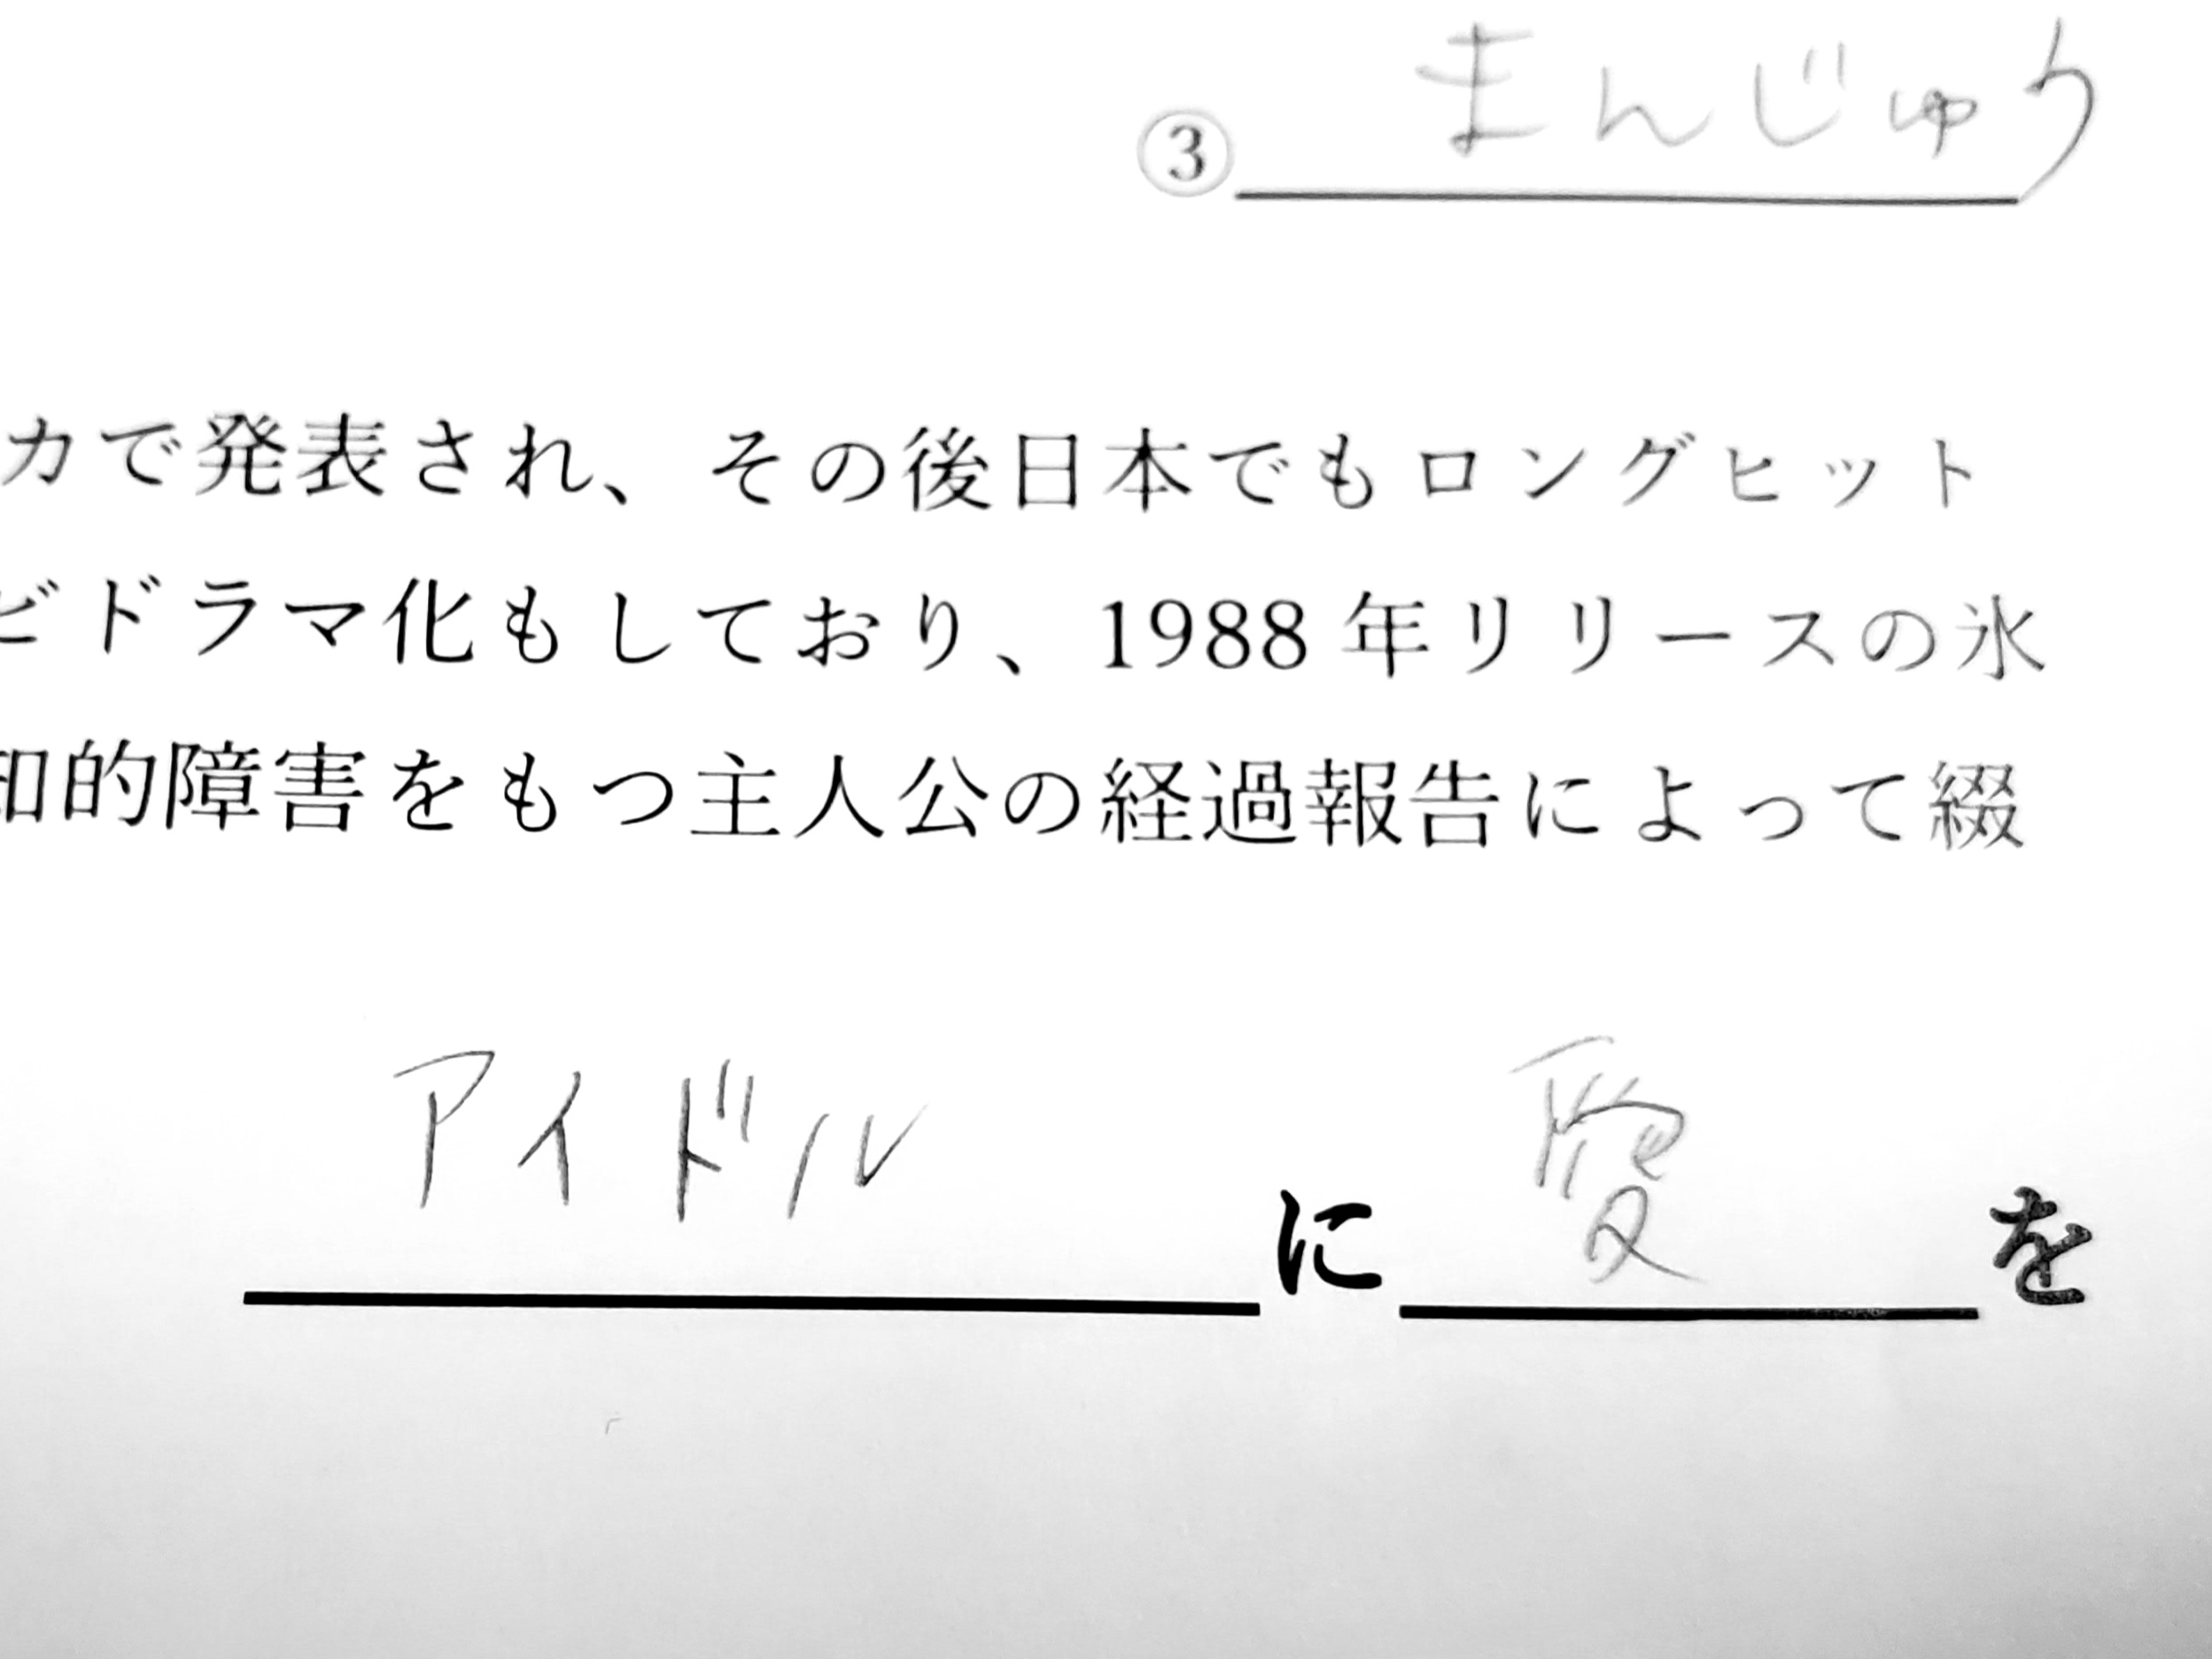 ③ まんじゅう
カで発表され、その後日本でもロングヒット
ビドラマ化もしており、1988 年リリースの氷
知的障害をもつ主人公の経過報告によって綴
アイドル に 愛 を